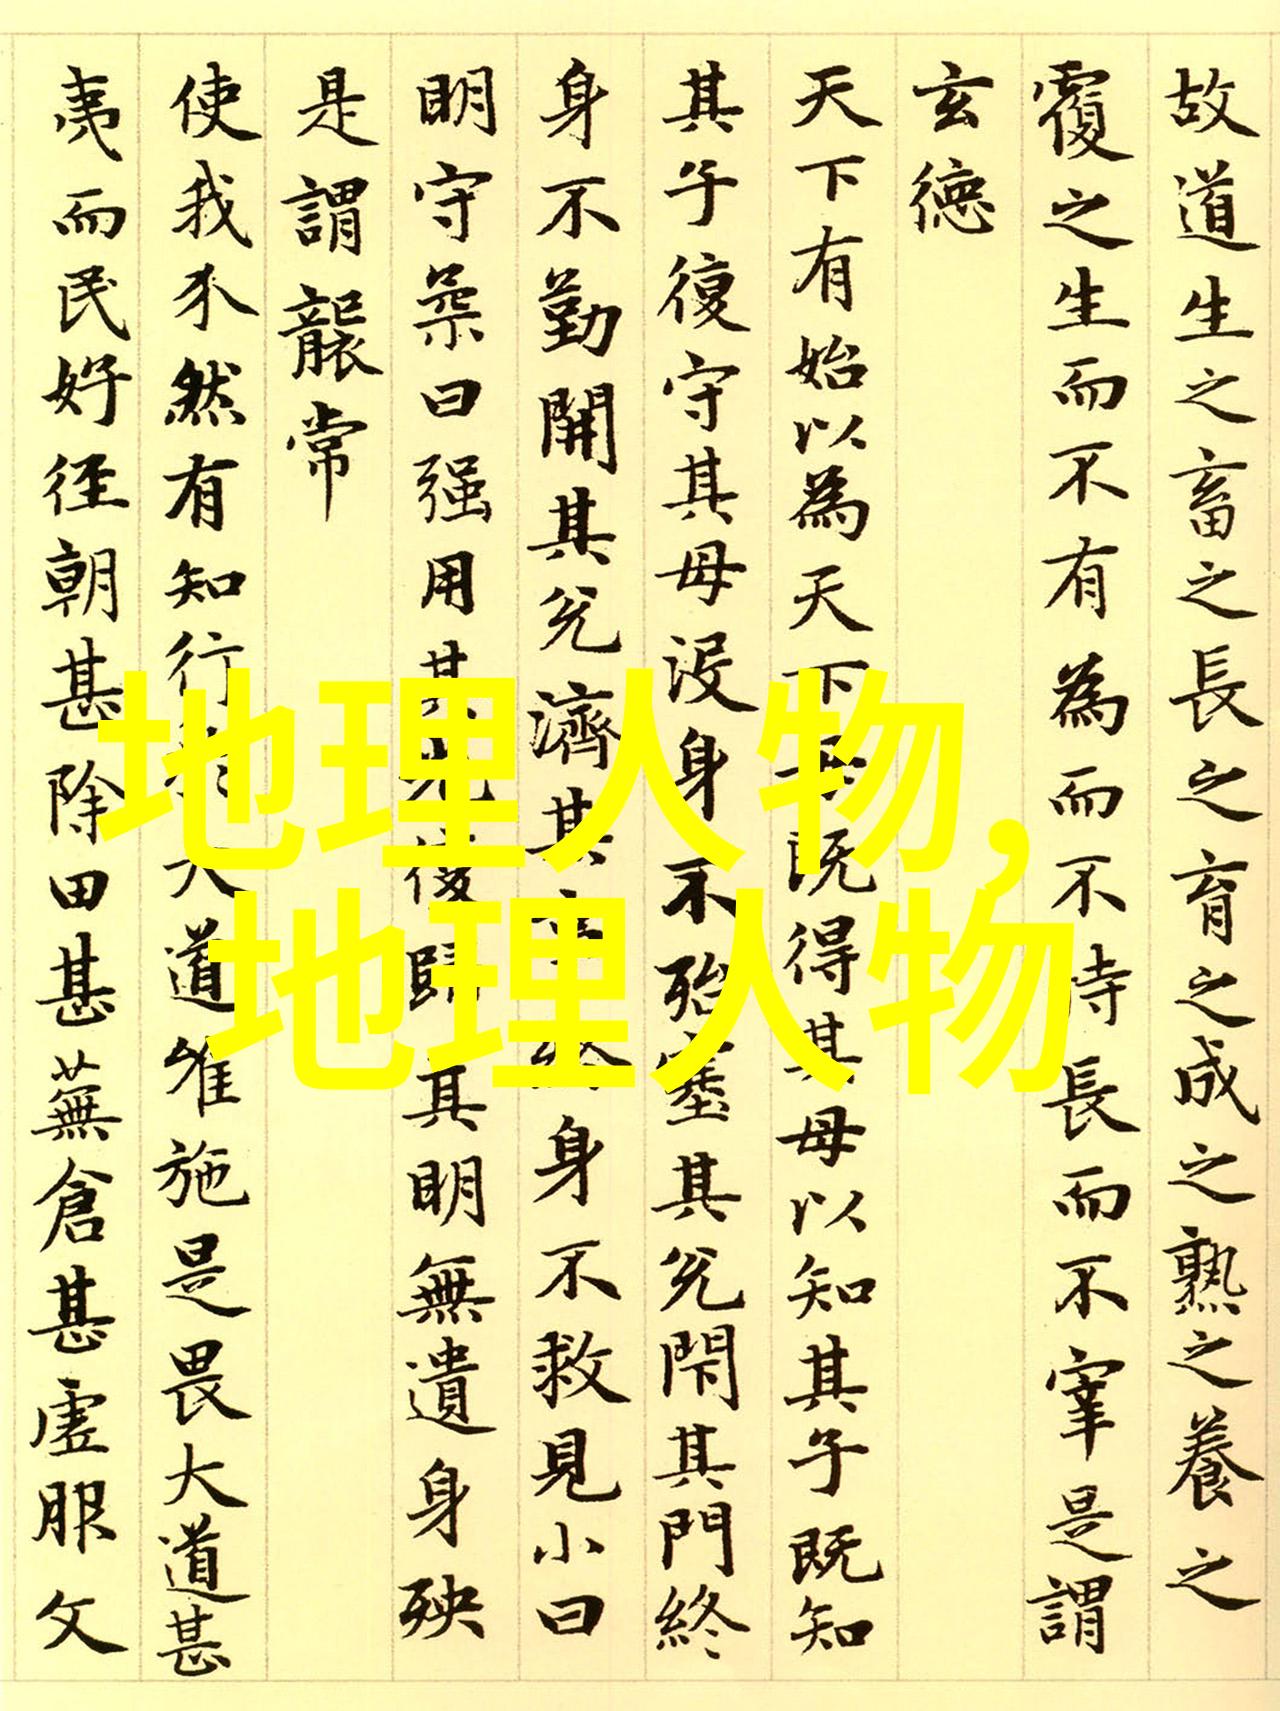 故道生之畜之長之育之成之熟之養之
覆之生而不有為而不恃長而不宰是謂
玄德
天下有始以為天下母既得其母以知其子既知
其子復守其母没身不殆塞其兊閇其門終
身不勤開其兊濟其事終身不救見小曰
明守柔曰强用其光復歸其明無遺身殃
是謂襲常
使我介然有知行於大道唯施是畏大道甚
夷而民好徑朝甚除田甚蕪倉甚虛服文
地理人物,
地理人物